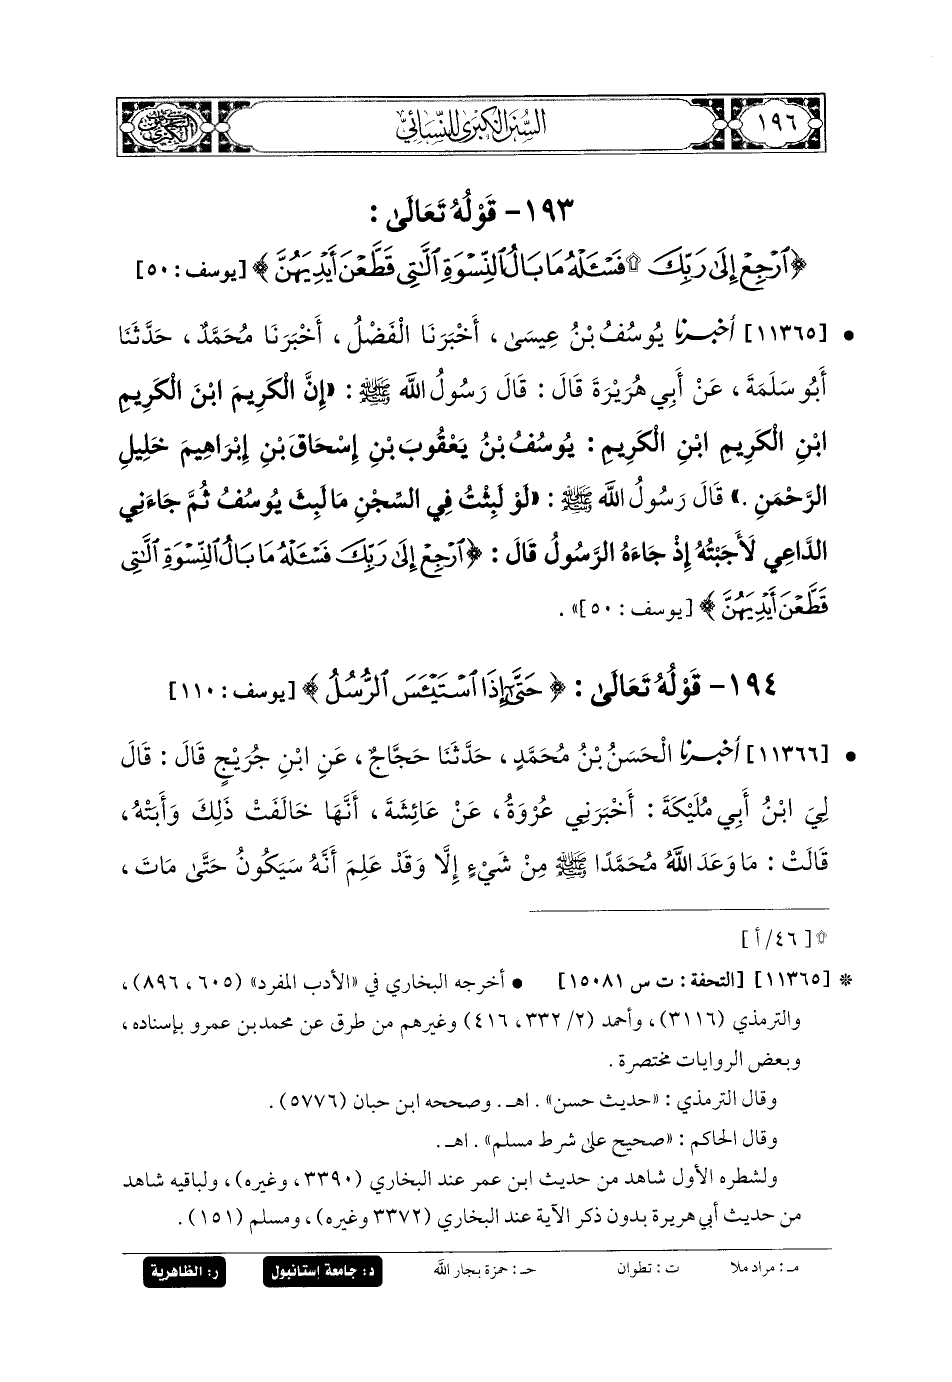 ١٩٦
السُّنَنُ الكُبْرَى لِلنَّسَائِيِّ
١٩٣- قَوْلُهُ تَعَالَىٰ :
﴿ ٱرْجِعْ إِلَىٰ رَبِّكَ ۩ فَسْـَٔلْهُ مَا بَالُ ٱلنِّسْوَةِ ٱلَّـٰتِي قَطَّعْنَ أَيْدِيَهُنَّ ﴾ [يوسف : ٥٠]
• [١١٣٦٥] أخبرنا يُوسُفُ بْنُ عِيسَىٰ ، أَخْبَرَنَا الْفَضْلُ ، أَخْبَرَنَا مُحَمَّدٌ ، حَدَّثَنَا
أَبُو سَلَمَةَ ، عَنْ أَبِي هُرَيْرَةَ قَالَ : قَالَ رَسُولُ اللَّه ﷺ : «إِنَّ الْكَرِيمَ ابْنَ الْكَرِيمِ
ابْنِ الْكَرِيمِ ابْنِ الْكَرِيمِ : يُوسُفُ بْنُ يَعْقُوبَ بْنِ إِسْحَاقَ بْنِ إِبْرَاهِيمَ خَلِيلِ
الرَّحْمَنِ .» قَالَ رَسُولُ اللَّه ﷺ : «لَوْ لَبِثْتُ فِي السِّجْنِ مَا لَبِثَ يُوسُفُ ثُمَّ جَاءَنِي
الدَّاعِي لَأَجَبْتُهُ إِذْ جَاءَهُ الرَّسُولُ قَالَ : ﴿ ٱرْجِعْ إِلَىٰ رَبِّكَ فَسْـَٔلْهُ مَا بَالُ ٱلنِّسْوَةِ ٱلَّـٰتِي
قَطَّعْنَ أَيْدِيَهُنَّ ﴾ [يوسف : ٥٠]» .
١٩٤- قَوْلُهُ تَعَالَىٰ : ﴿ حَتَّىٰٓ إِذَا ٱسْتَيْـَٔسَ ٱلرُّسُلُ ﴾ [يوسف : ١١٠]
• [١١٣٦٦] أخبرنا الْحَسَنُ بْنُ مُحَمَّدٍ ، حَدَّثَنَا حَجَّاجٌ ، عَنِ ابْنِ جُرَيْجٍ قَالَ : قَالَ
لِيَ ابْنُ أَبِي مُلَيْكَةَ : أَخْبَرَنِي عُرْوَةُ ، عَنْ عَائِشَةَ ، أَنَّهَا خَالَفَتْ ذَلِكَ وَأَبَتْهُ ،
قَالَتْ : مَا وَعَدَ اللَّهُ مُحَمَّدًا ﷺ مِنْ شَيْءٍ إِلَّا وَقَدْ عَلِمَ أَنَّهُ سَيَكُونُ حَتَّىٰ مَاتَ ،
۩ [٤٦/ أ]
* [١١٣٦٥] [التحفة : ت س ١٥٠٨١] • أخرجه البخاري في «الأدب المفرد» (٦٠٥ ، ٨٩٦) ،
والترمذي (٣١١٦) ، وأحمد (٢/ ٣٣٢ ، ٤١٦) وغيرهم من طرق عن محمد بن عمرو بإسناده ،
وبعض الروايات مختصرة .
وقال الترمذي : «حديث حسن» . اهـ . وصححه ابن حبان (٥٧٧٦) .
وقال الحاكم : «صحيح على شرط مسلم» . اهـ .
ولشطره الأول شاهد من حديث ابن عمر عند البخاري (٣٣٩٠ ، وغيره) ، ولباقيه شاهد
من حديث أبي هريرة بدون ذكر الآية عند البخاري (٣٣٧٢ وغيره) ، ومسلم (١٥١) .
مـ : مراد ملا ت : تطوان حـ : حمزة بجار اللَّه د: جامعة إستانبول ر: الظاهرية